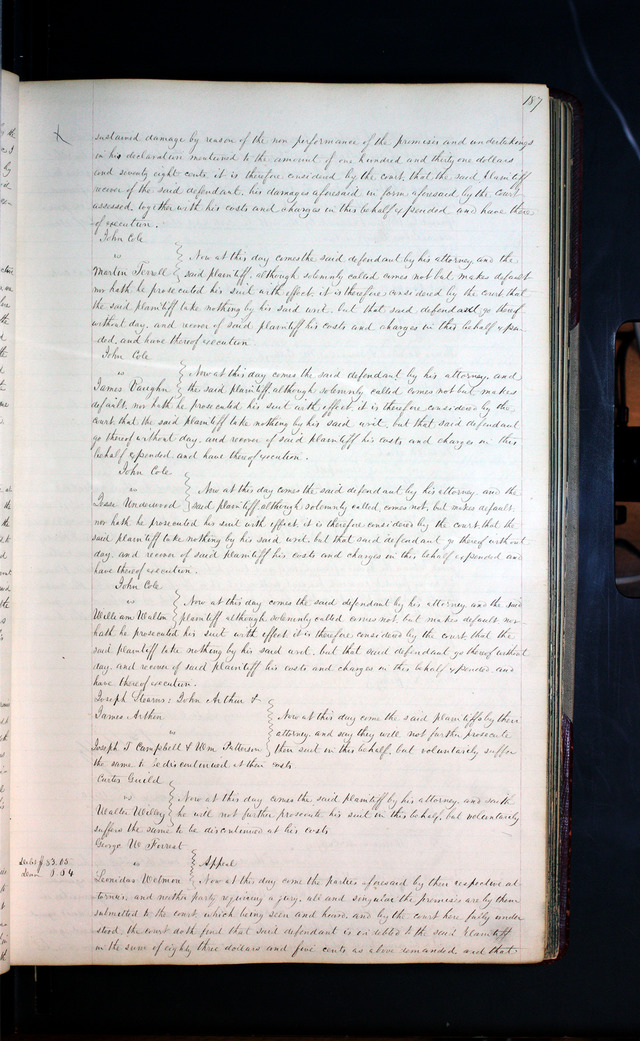 187
sustained damage by reason of the non performance of the premises and undertakings
in his declaration mentioned to the amount of one hundred and thirty one dollars
and seventy eight cents it is therefore considered by the court, that the said Plaintiff
recover of the said defendant, his damages aforesaid in form aforesaid by the Court
assessed, together with his costs and charges in this behalf expended and have there
of execution.
John Cole
vs Now at this day comes the said defendant by his attorney, and the
Martin Terrell said plaintiff, although solemnly called comes not but makes default
nor hath he prosecuted his suit with effect, it is therefore considered by the court that
the said plaintiff take nothing by his said writ, but that said defendant go thereof
without day, and recover of said plaintiff his costs and charges in this behalf expen
ded, and have thereof execution
John Cole
vs Now at this day comes the said defendant by his attorney, and
James Vaughn the said plaintiff, although solemnly called comes not but makes
default, nor hath he prosecuted his suit with effect, it is therefore considered by the
court, that the said plaintiff take nothing by his said writ, but that said defendant
go thereof without day, and recover of said plaintiff his costs and charges in this
behalf expended and have thereof execution.
John Cole
vs Now at this day comes the said defendant by his attorney and the
Jesse Underwood said plaintiff, although solemnly called, comes not, but makes default,
nor hath he prosecuted his suit with effect it is therefore considered by the court, that the
said plaintiff take nothing by his said writ, but that said defendant go thereof without
day, and recover of said plaintiff his costs and charges in this behalf expended and
have thereof execution.
John Cole
vs Now at this day comes the said defendant by his attorney and the said
William Walton plaintiff although solemnly called comes not, but makes default nor
hath he prosecuted his suit with effect it is therefore considered by the court, that the
said plaintiff take nothing by his said writ, but that said defendant go thereof without
day, and recover of said plaintiff his costs and charges in this behalf expended and
have thereof execution.
Joseph Stearns: John Arthur &
James Arthur Now at this day come the said plaintiffs by their
vs attorney, and say they will not further prosecute
Joseph T Campbell & Wm. Patterson their suit in this behalf, but voluntarily suffer
the same to be discontinued at their costs.
Curtis Guild
vs Now at this day comes the said plaintiff by his attorney, and saith
Walter Willey he will not further prosecute his suit in this behalf, but voluntarily
suffers the same to be discontinued at his costs
George W Forrest
Debt $83.05. vs Appeal
Dam. 0.04 Leonidas Wetmore Now at this day come the parties aforesaid by their respective at
tornies, and neither party requiring a jury, all and singular the premises are by them
submitted to the court, which being seen and heard, and by the court here fully under
stood, the court doth find that said defendant is indebted to the said Plaintiff
in the sum of eighty three dollars and five cents as above demanded and that